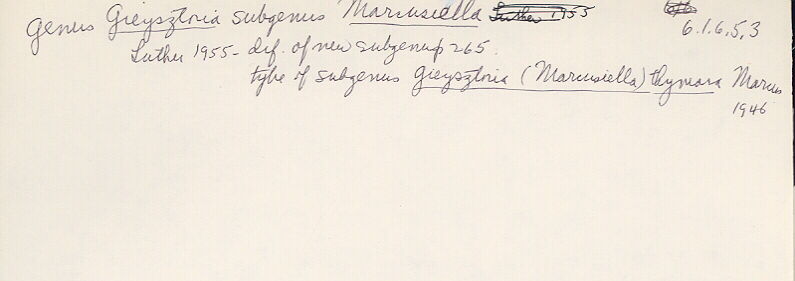 Genus Gieysztoria subgenus Marcusiella Luther 1955
6.1.6.5,3
Luther 1955- dif. of new subgenus p 265.
type of subgenus Gieysztoria (Marcusiella) thymara Marcus
1946